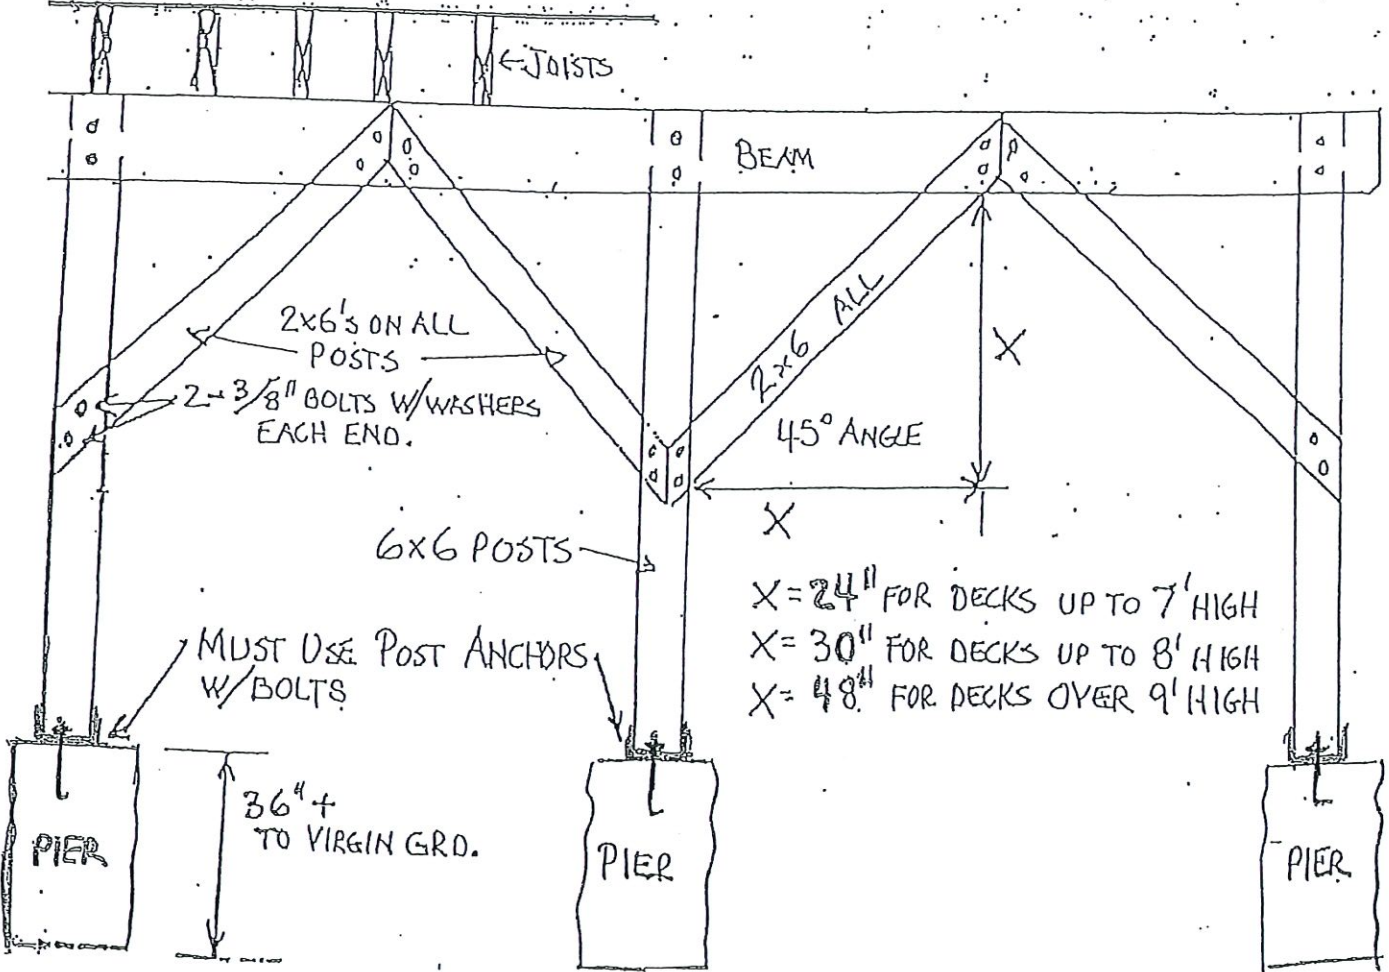 ←JOISTS
BEAM
2x6's ON ALL
POSTS
2x6 ALL
X
2-3/8" BOLTS W/WASHERS
EACH END.
45° ANGLE
X
6x6 POSTS
X=24" FOR DECKS UP TO 7' HIGH
X=30" FOR DECKS UP TO 8' HIGH
X=48" FOR DECKS OVER 9' HIGH
MUST USE POST ANCHORS
W/BOLTS
36"+
TO VIRGIN GRD.
PIER
PIER
PIER